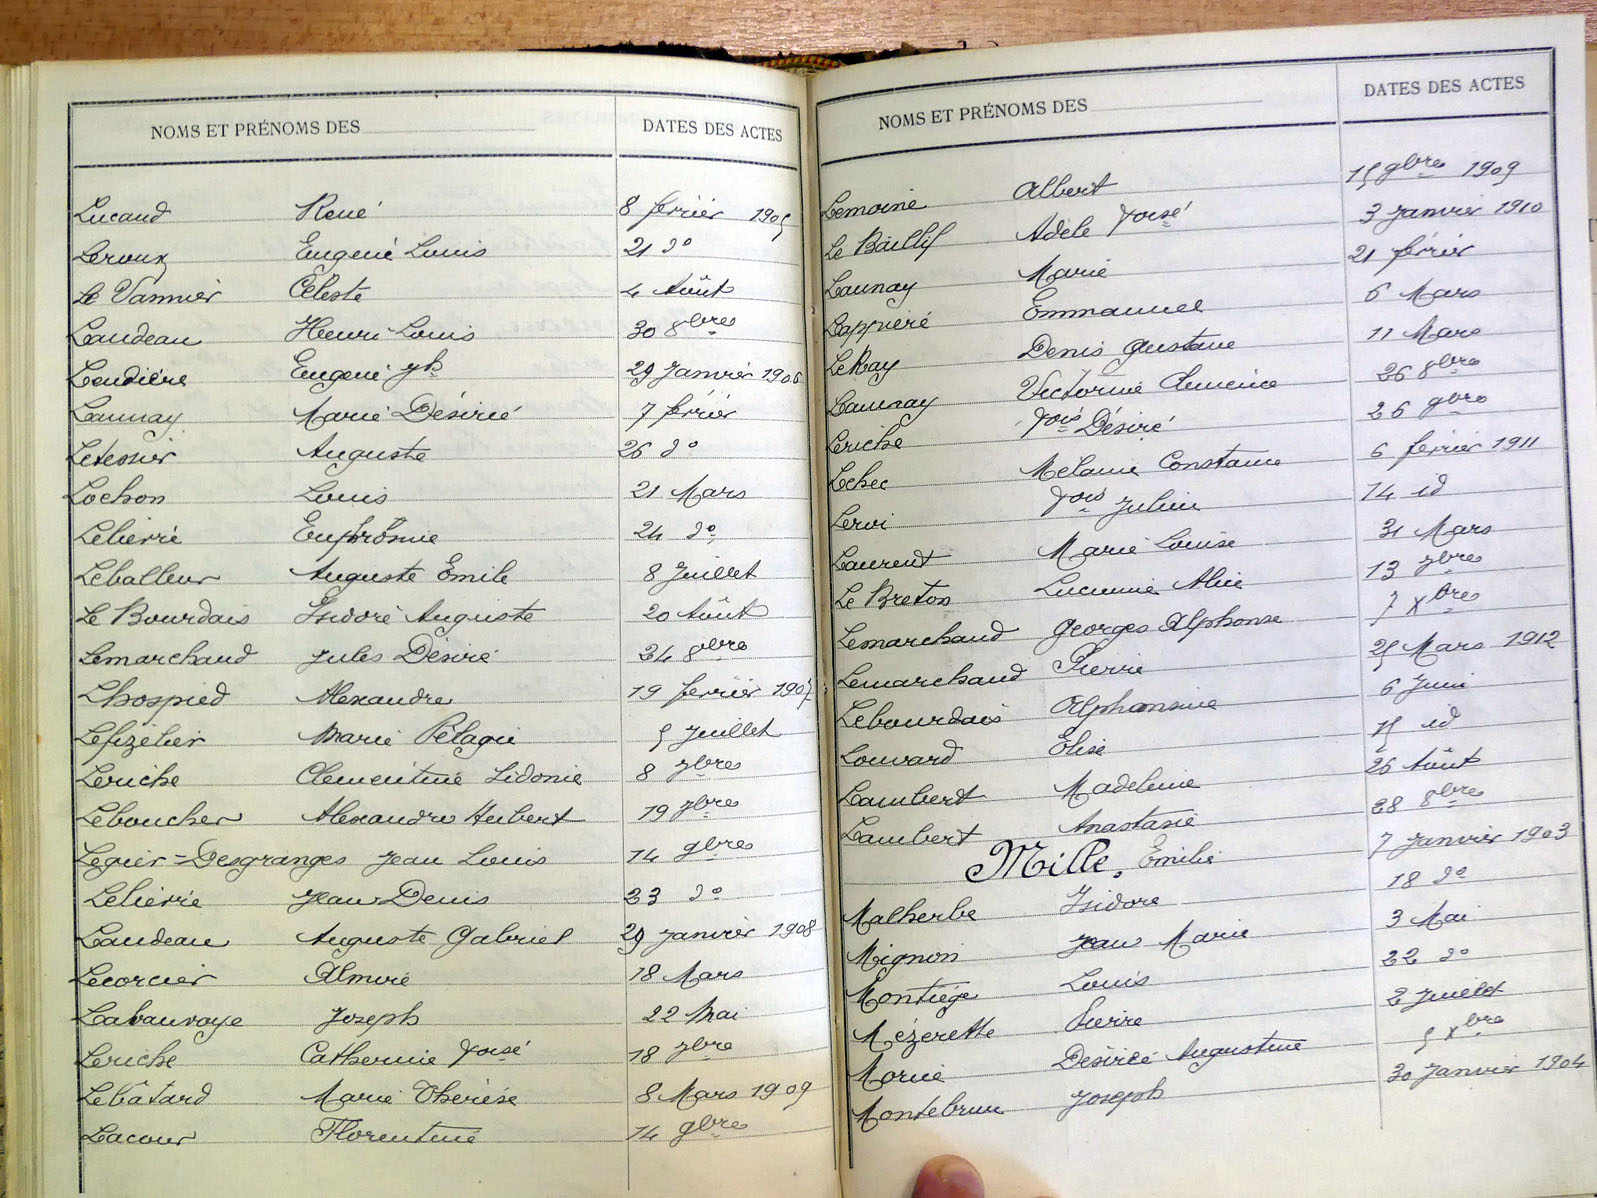 NOMS ET PRÉNOMS DES DATES DES ACTES
Lucand René 8 février 1905
Leroux Eugène Louis 21 do
Le Vannier Céleste 4 Août
Landeau Henri Louis 30 8bres
Loudière Eugène jh 29 Janvier 1906
Launay Marie Désirée 7 février
Letessier Auguste 26 do
Lochon Louis 21 Mars
Lelièvre Euphrosine 24 do
Leballeur Auguste Emile 8 Juillet
Le Bourdais Isidore Auguste 20 Août
Lemarchand Jules Désiré 24 8bres
Lhospied Alexandre 19 février 1907
Lefizelier Marie Pélagie 5 Juillet
Leriche Clémentine Sidonie 8 7bres
Leboucher Alexandre Hubert 19 7bres
Legnier=Desgranges Jean Louis 14 9bres
Lelièvre Jean Denis 23 do
Landeau Auguste Gabriel 29 Janvier 1908
Lecorcier Almire 18 Mars
Labauvoye Joseph 22 Mai
Leriche Catherine foisé 18 7bre
Lebâtard Marie Thérèse 8 Mars 1909
Lacour Florentine 14 9bres
NOMS ET PRÉNOMS DES DATES DES ACTES
Lemoine Albert 15 9bres 1909
Le Baillif Adèle foisé 3 Janvier 1910
Launay Marie 21 février
Lappiéré Emmanuel 6 Mars
LeRay Denis Gustave 11 Mars
Launay Victorine Clémence 26 8bre
Leriche fois Désiré 26 9bre
Lehec Mélanie Constance 6 février 1911
Leroi fois Julien 14 id
Laurent Marie Louise 31 Mars
Le Breton Lucienne Alice 13 7bres
Lemarchand Georges Alphonse 7 Xbres
Lemarchand Pierre 25 Mars 1912
Lebourdais Alphonsine 6 Juin
Louvard Elise 15 id
Lambert Madeleine 26 Août
Lambert Anastasie 28 8bre
Mille. Emilie 7 Janvier 1903
Malherbe Isidore 18 do
Mignon Jean Marie 3 Mai
Montiège Louis 22 do
Mézerette Pierre 2 Juillet
Morice Désirée Augustine 5 Xbre
Montebrun Joseph 30 Janvier 1904